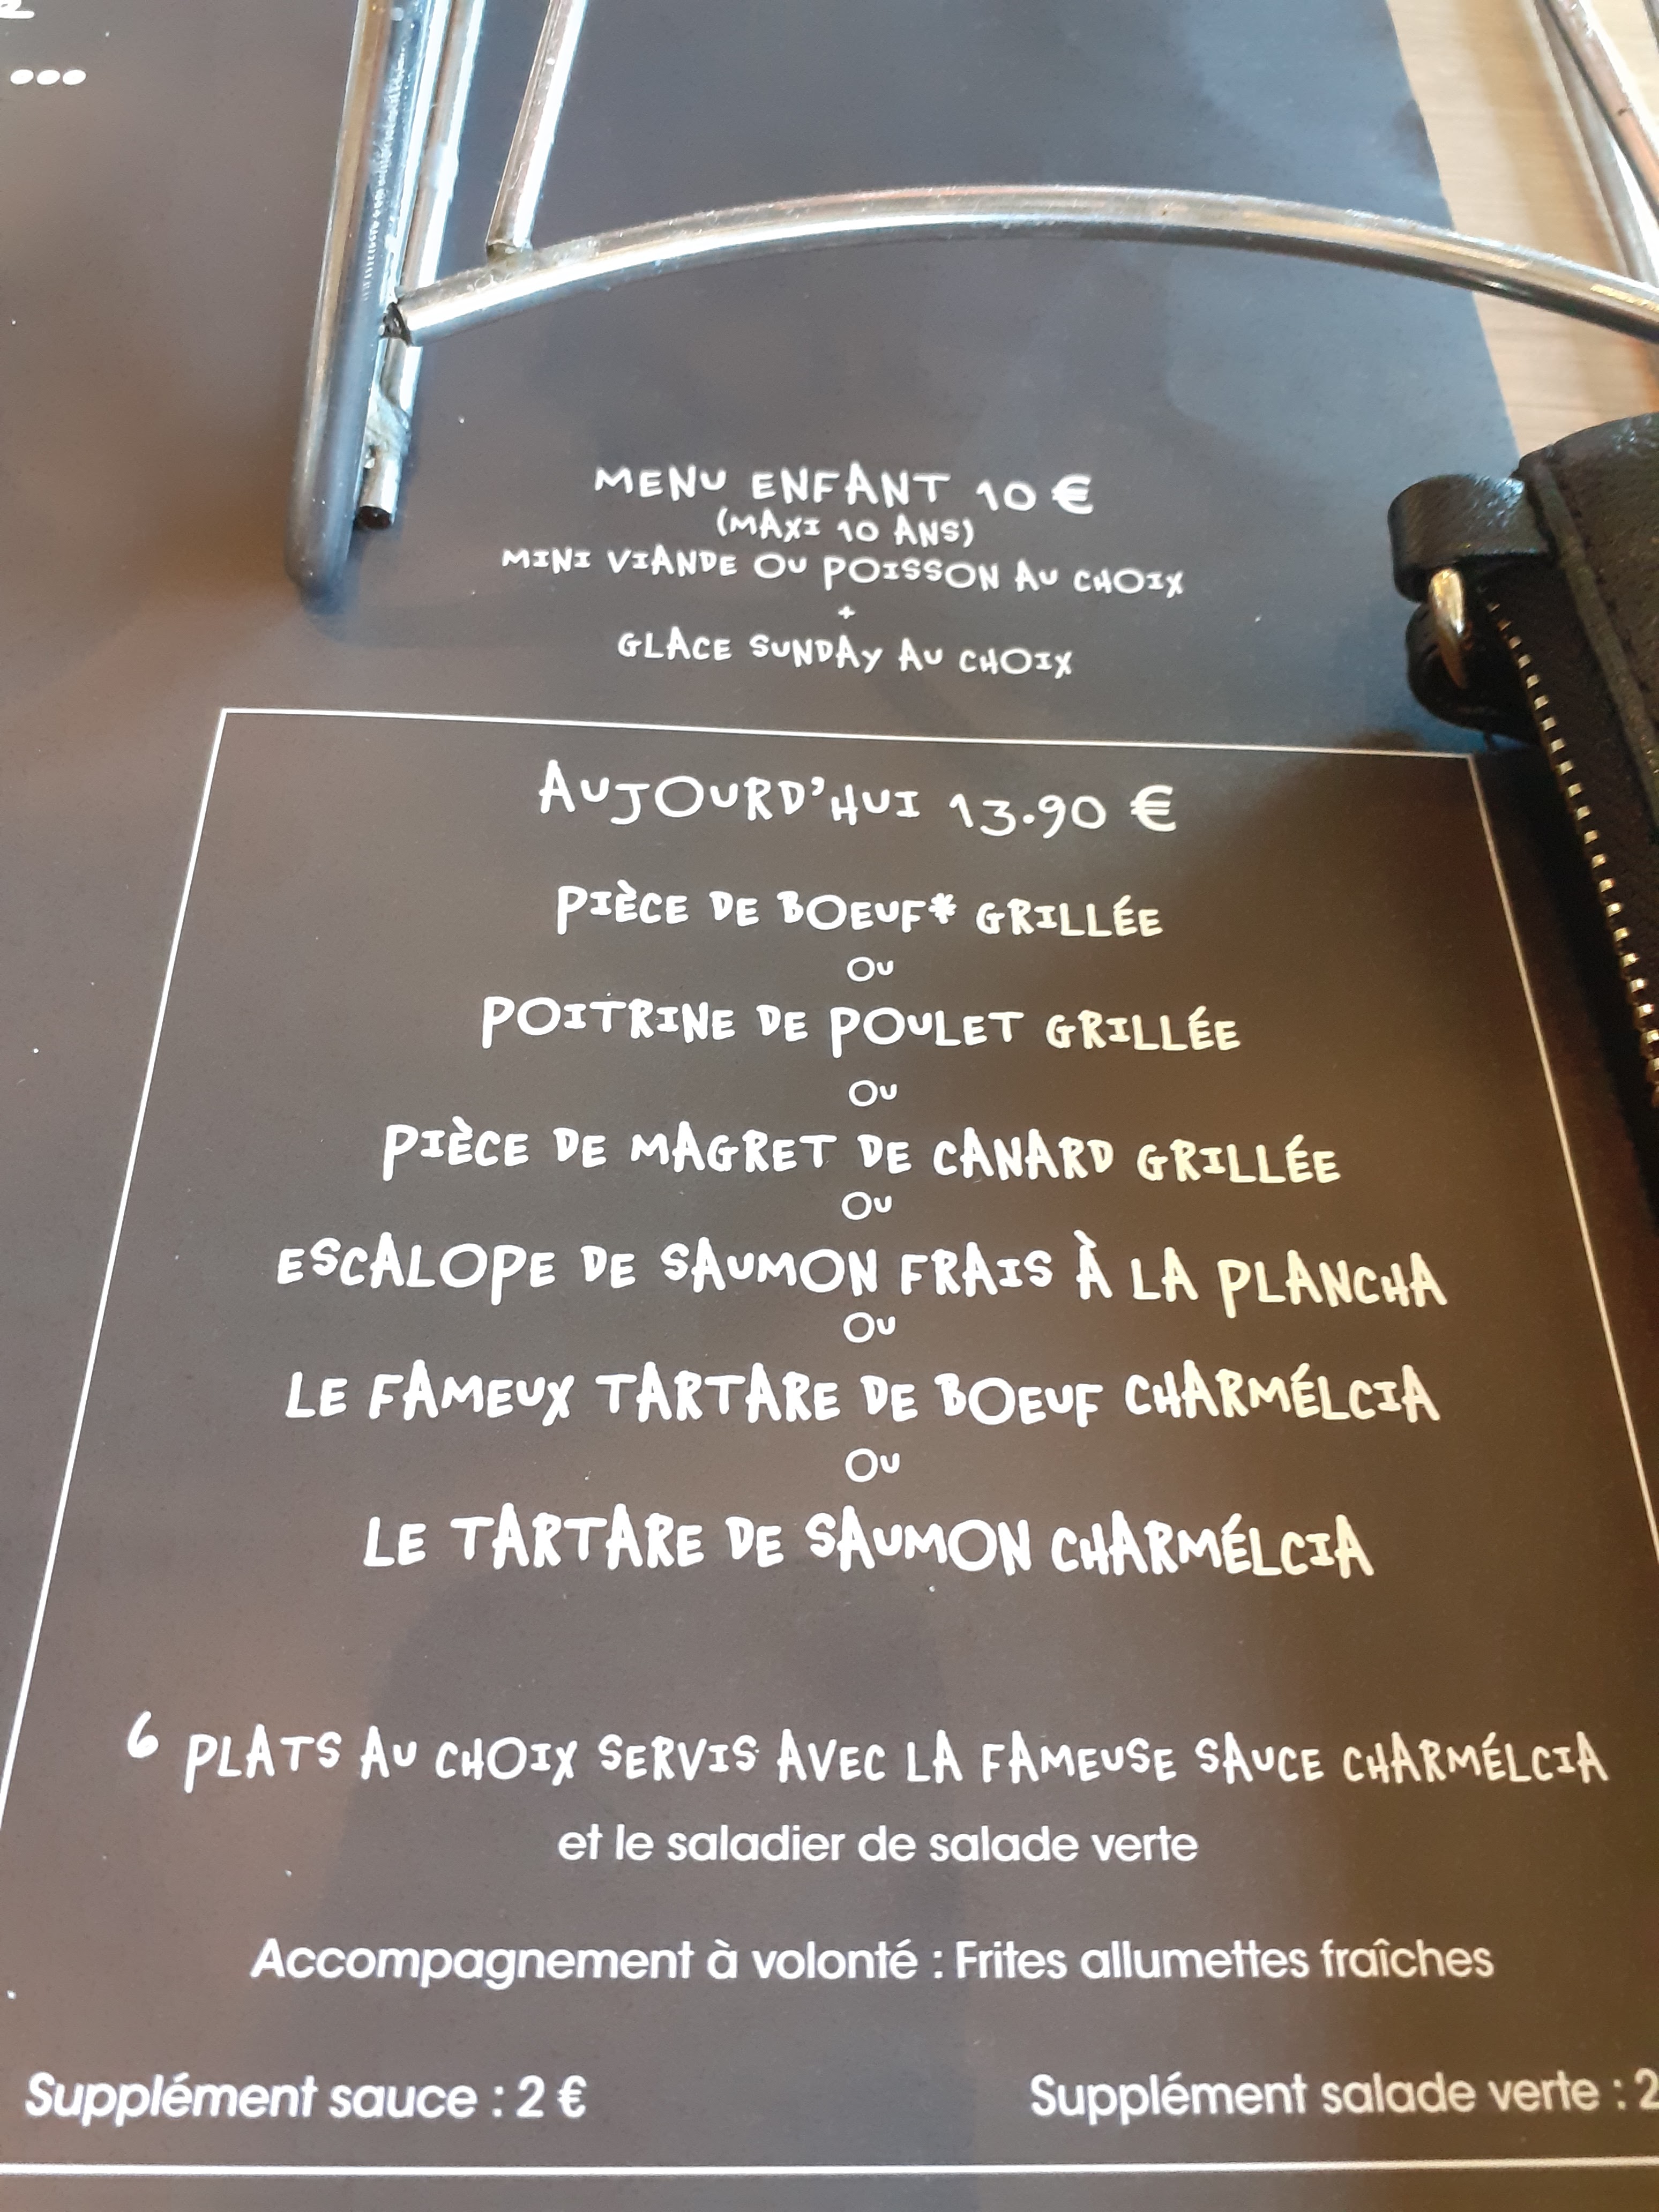 ...
MENU ENFANT 10 €
(MAXI 10 ANS)
MINI VIANDE OU POISSON AU CHOIX
+
GLACE SUNDAY AU CHOIX
AUJOURD'HUI 13.90 €
PIÈCE DE BOEUF* GRILLÉE
OU
POITRINE DE POULET GRILLÉE
OU
PIÈCE DE MAGRET DE CANARD GRILLÉE
OU
ESCALOPE DE SAUMON FRAIS À LA PLANCHA
OU
LE FAMEUX TARTARE DE BOEUF CHARMÉLCIA
OU
LE TARTARE DE SAUMON CHARMÉLCIA
6 PLATS AU CHOIX SERVIS AVEC LA FAMEUSE SAUCE CHARMÉLCIA
et le saladier de salade verte
Accompagnement à volonté : Frites allumettes fraîches
Supplément sauce : 2 €
Supplément salade verte : 2